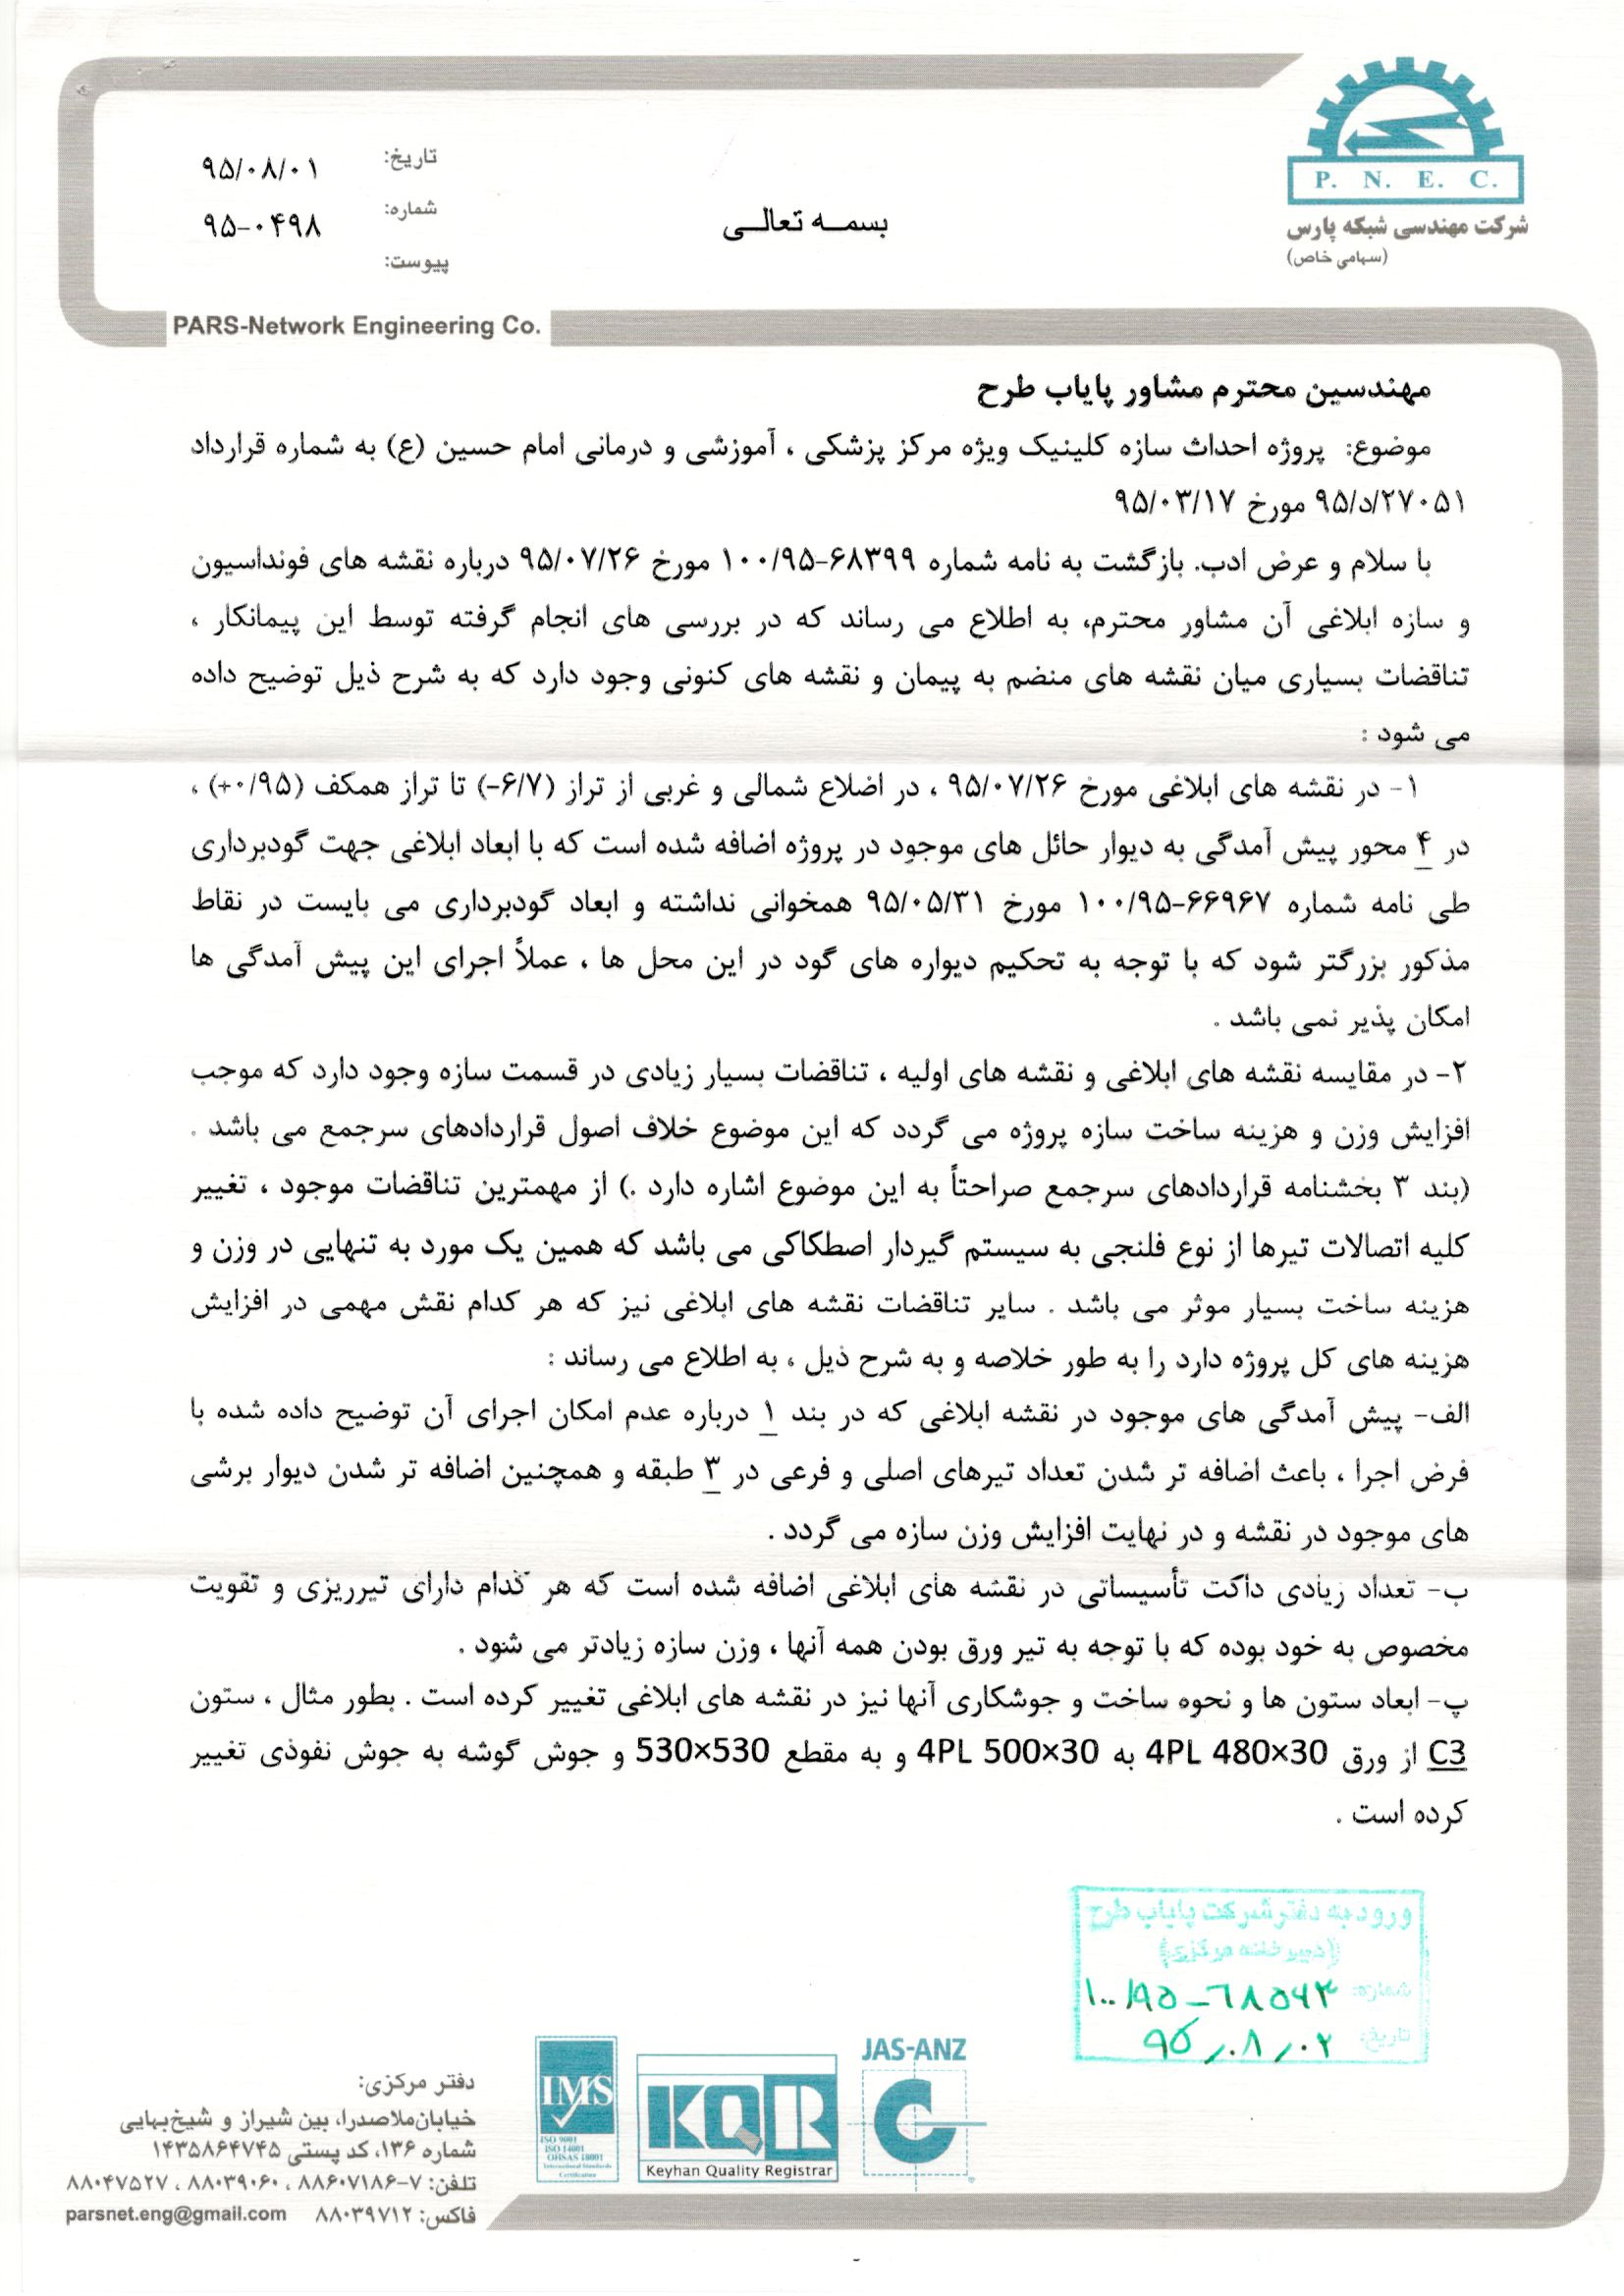 P. N. E. C.
شرکت مهندسی شبکه پارس
(سهامی خاص)
تاریخ: ۹۵/۰۸/۰۱
شماره: ۹۵-۰۴۹۸
پیوست:
بسمه تعالی
PARS-Network Engineering Co.
مهندسین محترم مشاور پایاب طرح
موضوع: پروژه احداث سازه کلینیک ویژه مرکز پزشکی ، آموزشی و درمانی امام حسین (ع) به شماره قرارداد
۲۷۰۵۱/د/۹۵ مورخ ۹۵/۰۳/۱۷
با سلام و عرض ادب. بازگشت به نامه شماره ۶۸۳۹۹-۱۰۰/۹۵ مورخ ۹۵/۰۷/۲۶ درباره نقشه های فونداسیون
و سازه ابلاغی آن مشاور محترم، به اطلاع می رساند که در بررسی های انجام گرفته توسط این پیمانکار ،
تناقضات بسیاری میان نقشه های منضم به پیمان و نقشه های کنونی وجود دارد که به شرح ذیل توضیح داده
می شود :
۱- در نقشه های ابلاغی مورخ ۹۵/۰۷/۲۶ ، در اضلاع شمالی و غربی از تراز (۶/۷-) تا تراز همکف (۰/۹۵+) ،
در ۴ محور پیش آمدگی به دیوار حائل های موجود در پروژه اضافه شده است که با ابعاد ابلاغی جهت گودبرداری
طی نامه شماره ۶۶۹۶۷-۱۰۰/۹۵ مورخ ۹۵/۰۵/۳۱ همخوانی نداشته و ابعاد گودبرداری می بایست در نقاط
مذکور بزرگتر شود که با توجه به تحکیم دیواره های گود در این محل ها ، عملاً اجرای این پیش آمدگی ها
امکان پذیر نمی باشد .
۲- در مقایسه نقشه های ابلاغی و نقشه های اولیه ، تناقضات بسیار زیادی در قسمت سازه وجود دارد که موجب
افزایش وزن و هزینه ساخت سازه پروژه می گردد که این موضوع خلاف اصول قراردادهای سرجمع می باشد .
(بند ۳ بخشنامه قراردادهای سرجمع صراحتاً به این موضوع اشاره دارد .) از مهمترین تناقضات موجود ، تغییر
کلیه اتصالات تیرها از نوع فلنجی به سیستم گیردار اصطکاکی می باشد که همین یک مورد به تنهایی در وزن و
هزینه ساخت بسیار موثر می باشد . سایر تناقضات نقشه های ابلاغی نیز که هر کدام نقش مهمی در افزایش
هزینه های کل پروژه دارد را به طور خلاصه و به شرح ذیل ، به اطلاع می رساند :
الف- پیش آمدگی های موجود در نقشه ابلاغی که در بند ۱ درباره عدم امکان اجرای آن توضیح داده شده با
فرض اجرا ، باعث اضافه تر شدن تعداد تیرهای اصلی و فرعی در ۳ طبقه و همچنین اضافه تر شدن دیوار برشی
های موجود در نقشه و در نهایت افزایش وزن سازه می گردد .
ب- تعداد زیادی داکت تأسیساتی در نقشه های ابلاغی اضافه شده است که هر کدام دارای تیرریزی و تقویت
مخصوص به خود بوده که با توجه به تیر ورق بودن همه آنها ، وزن سازه زیادتر می شود .
پ- ابعاد ستون ها و نحوه ساخت و جوشکاری آنها نیز در نقشه های ابلاغی تغییر کرده است . بطور مثال ، ستون
C3 از ورق 4PL 480×30 به 4PL 500×30 و به مقطع 530×530 و جوش گوشه به جوش نفوذی تغییر
کرده است .
ورود به دفتر شرکت پایاب طرح
(دبیرخانه مرکزی)
شماره: ۱۰۰/۹۵-۶۸۵۶۳
تاریخ: ۹۵/۰۸/۰۲
JAS-ANZ
IMS
ISO 9001
ISO 14001
OHSAS 18001
International Standards
Certification
KQR
Keyhan Quality Registrar
دفتر مرکزی:
خیابان ملاصدرا، بین شیراز و شیخ بهایی
شماره ۱۳۶، کد پستی ۱۴۳۵۸۶۴۷۴۵
تلفن: ۷-۸۸۶۰۷۱۸۶ ، ۸۸۰۳۹۰۶۰ ، ۸۸۰۴۷۵۲۷
فاکس: ۸۸۰۳۹۷۱۲ parsnet.eng@gmail.com